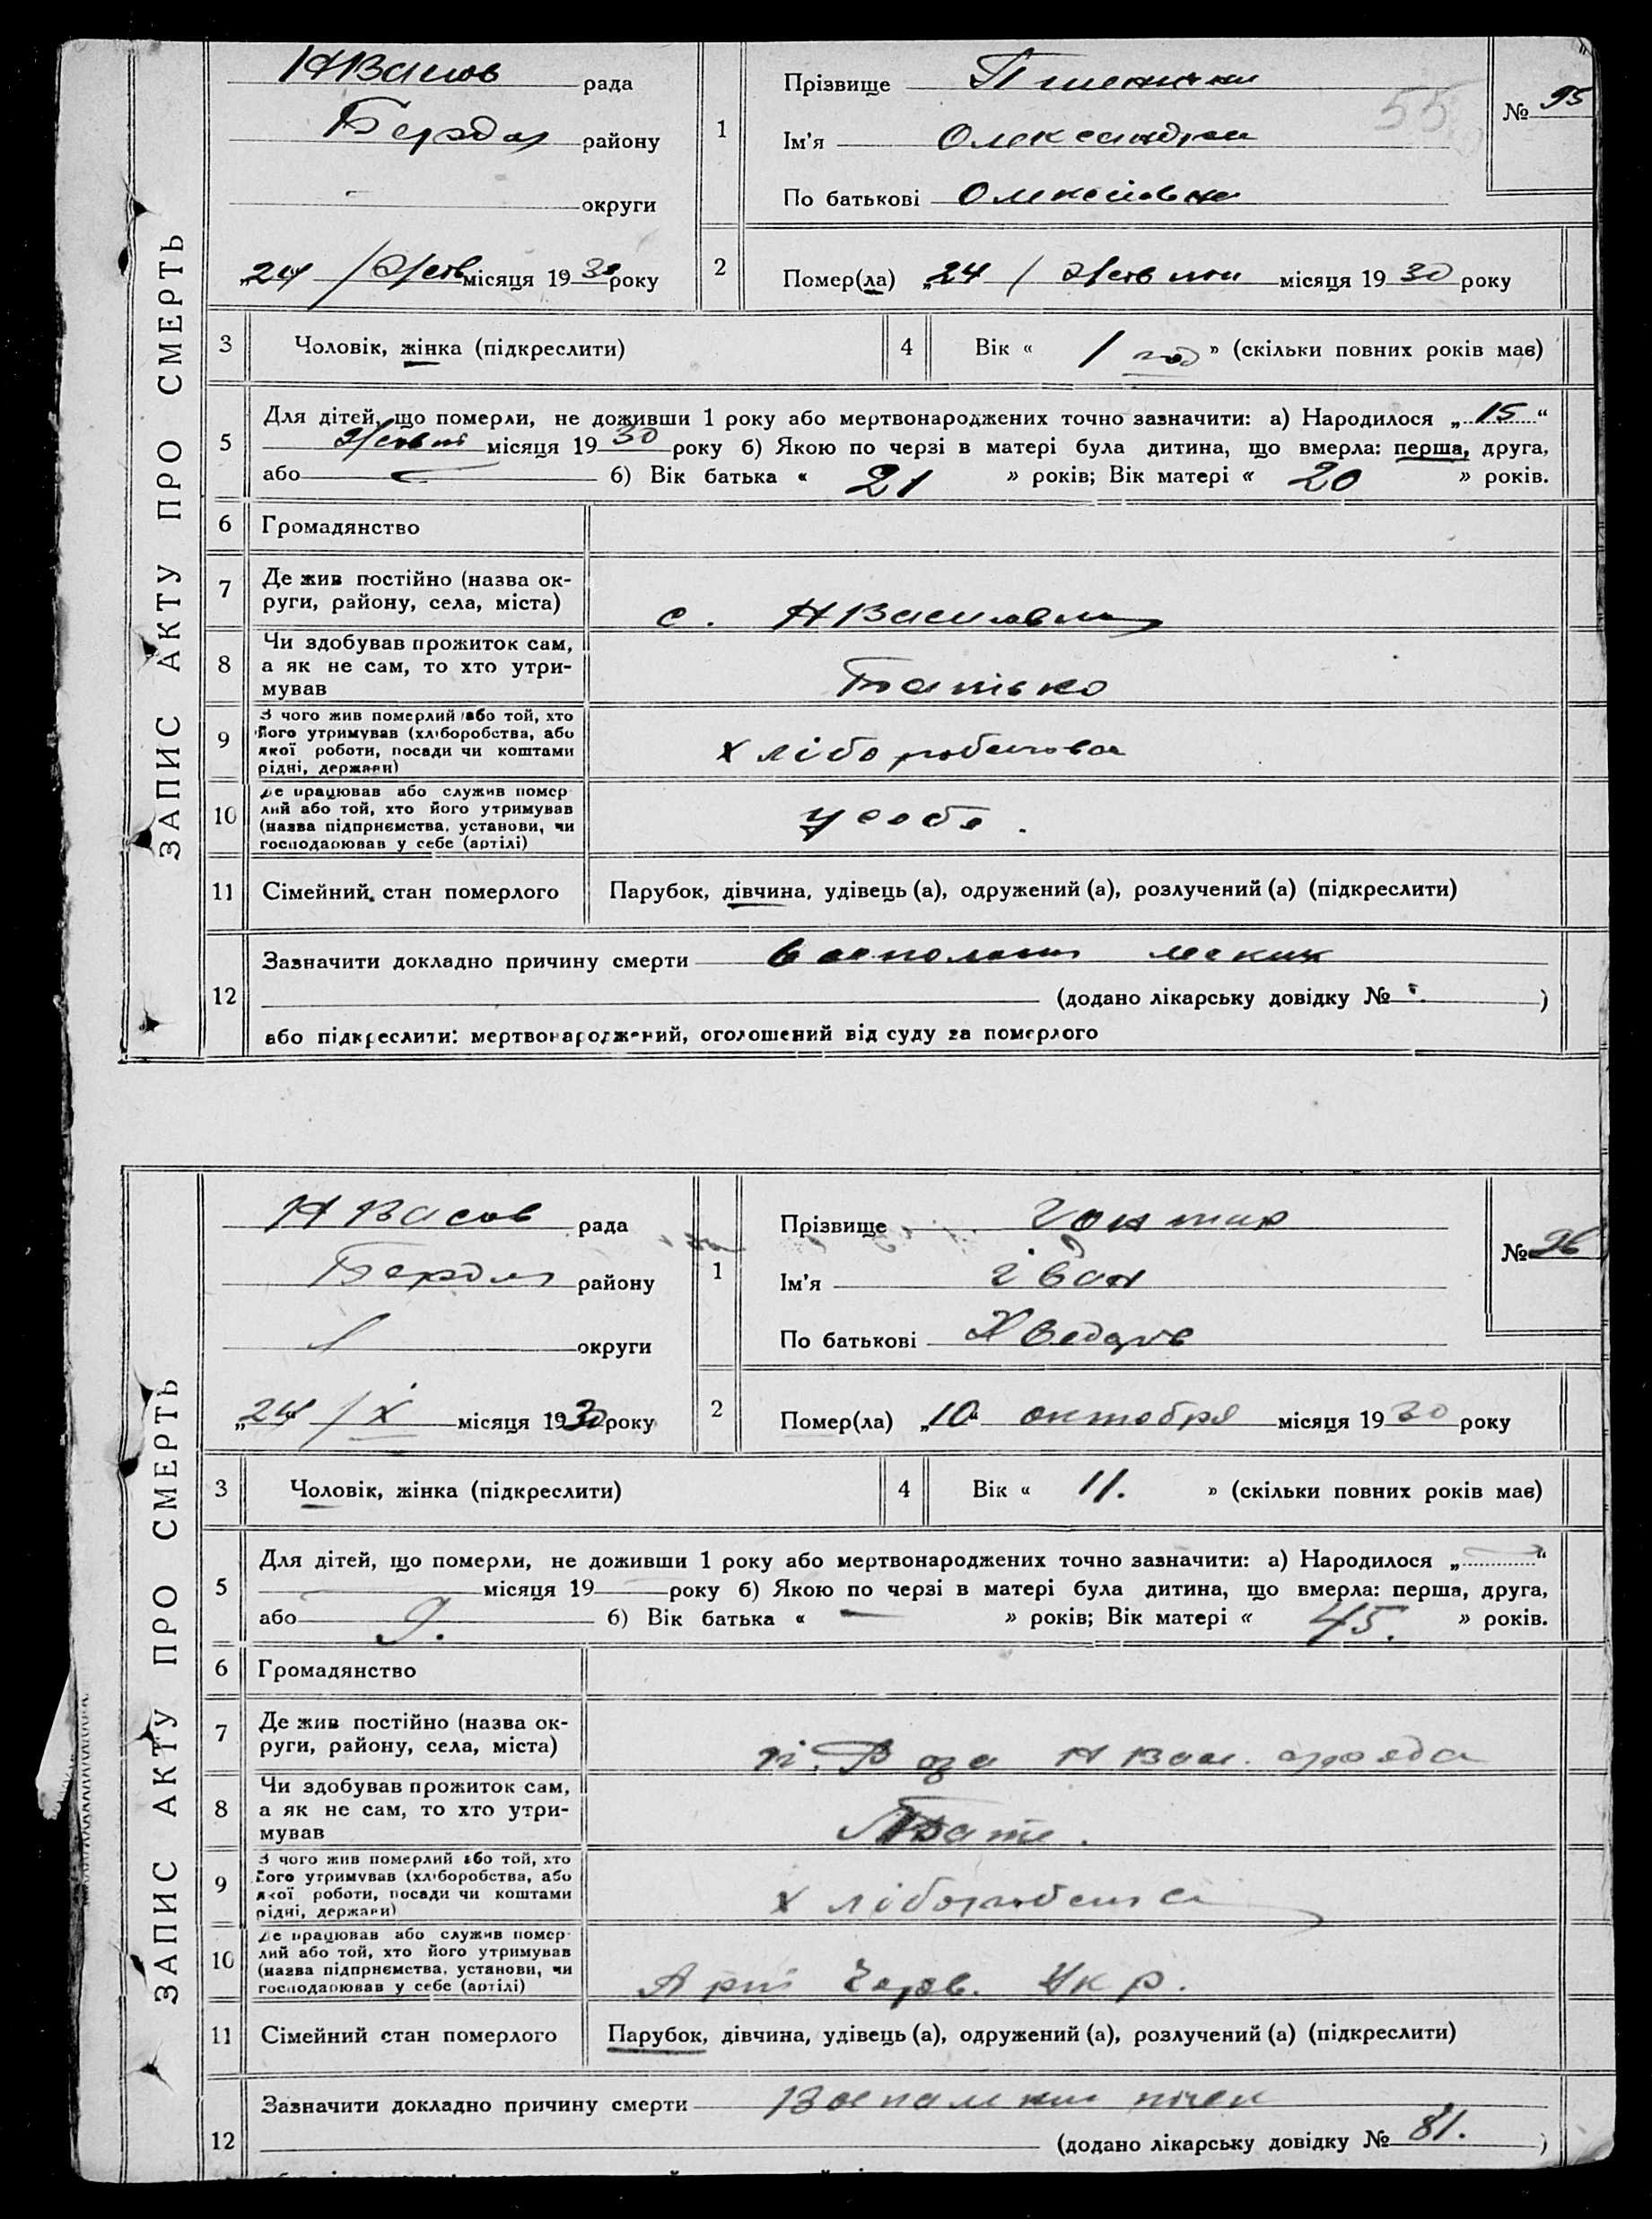 НВасов рада
Бердян району
округи
„24 / Жовт місяця 1930 року
1
Прізвище
Ім'я Олександра
По батькові Олексіовна
55
№ 95
2
Помер(ла) „24 / Жовтня місяця 1930 року
3
Чоловік, жінка (підкреслити)
4
Вік « 1 год » (скільки повних років має)
ЗАПИС АКТУ ПРО СМЕРТЬ
5
Для дітей, що померли, не доживши 1 року або мертвонароджених точно зазначити: а) Народилося „15“
Жовтня місяця 1930 року б) Якою по черзі в матері була дитина, що вмерла: перша, друга,
або — б) Вік батька « 21 » років; Вік матері « 20 » років.
6
Громадянство
7
Де жив постійно (назва ок-
руги, району, села, міста)
с. НВасиловка
8
Чи здобував прожиток сам,
а як не сам, то хто утри-
мував
Батько
9
З чого жив померлий або той, хто
його утримував (хліборобства, або
якої роботи, посади чи коштами
рідні, держави)
хліборобства
10
Де працював або служив помер-
лий або той, хто його утримував
(назва підприємства, установи, чи
господарював у себе (артілі)
у себе.
11
Сімейний стан померлого
Парубок, дівчина, удівець (а), одружений (а), розлучений (а) (підкреслити)
12
Зазначити докладно причину смерти воспаления
(додано лікарську довідку № )
або підкреслити: мертвонароджений, оголошений від суду за померлого
НВасов рада
Бердян району
округи
„24 / X місяця 1930 року
1
Прізвище Гонтар
Ім'я Іван
По батькові Хведорів
№ 96
2
Помер(ла) „10“ октобря місяця 1930 року
3
Чоловік, жінка (підкреслити)
4
Вік « 11. » (скільки повних років має)
ЗАПИС АКТУ ПРО СМЕРТЬ
5
Для дітей, що померли, не доживши 1 року або мертвонароджених точно зазначити: а) Народилося „ “
місяця 19 року б) Якою по черзі в матері була дитина, що вмерла: перша, друга,
або 9. б) Вік батька « — » років; Вік матері « 45. » років.
6
Громадянство
7
Де жив постійно (назва ок-
руги, району, села, міста)
НВас.
8
Чи здобував прожиток сам,
а як не сам, то хто утри-
мував
9
З чого жив померлий або той, хто
його утримував (хліборобства, або
якої роботи, посади чи коштами
рідні, держави)
хліборобства
10
Де працював або служив помер-
лий або той, хто його утримував
(назва підприємства, установи, чи
господарював у себе (артілі)
Арт Черв. Укр.
11
Сімейний стан померлого
Парубок, дівчина, удівець (а), одружений (а), розлучений (а) (підкреслити)
12
Зазначити докладно причину смерти
(додано лікарську довідку № 81. )